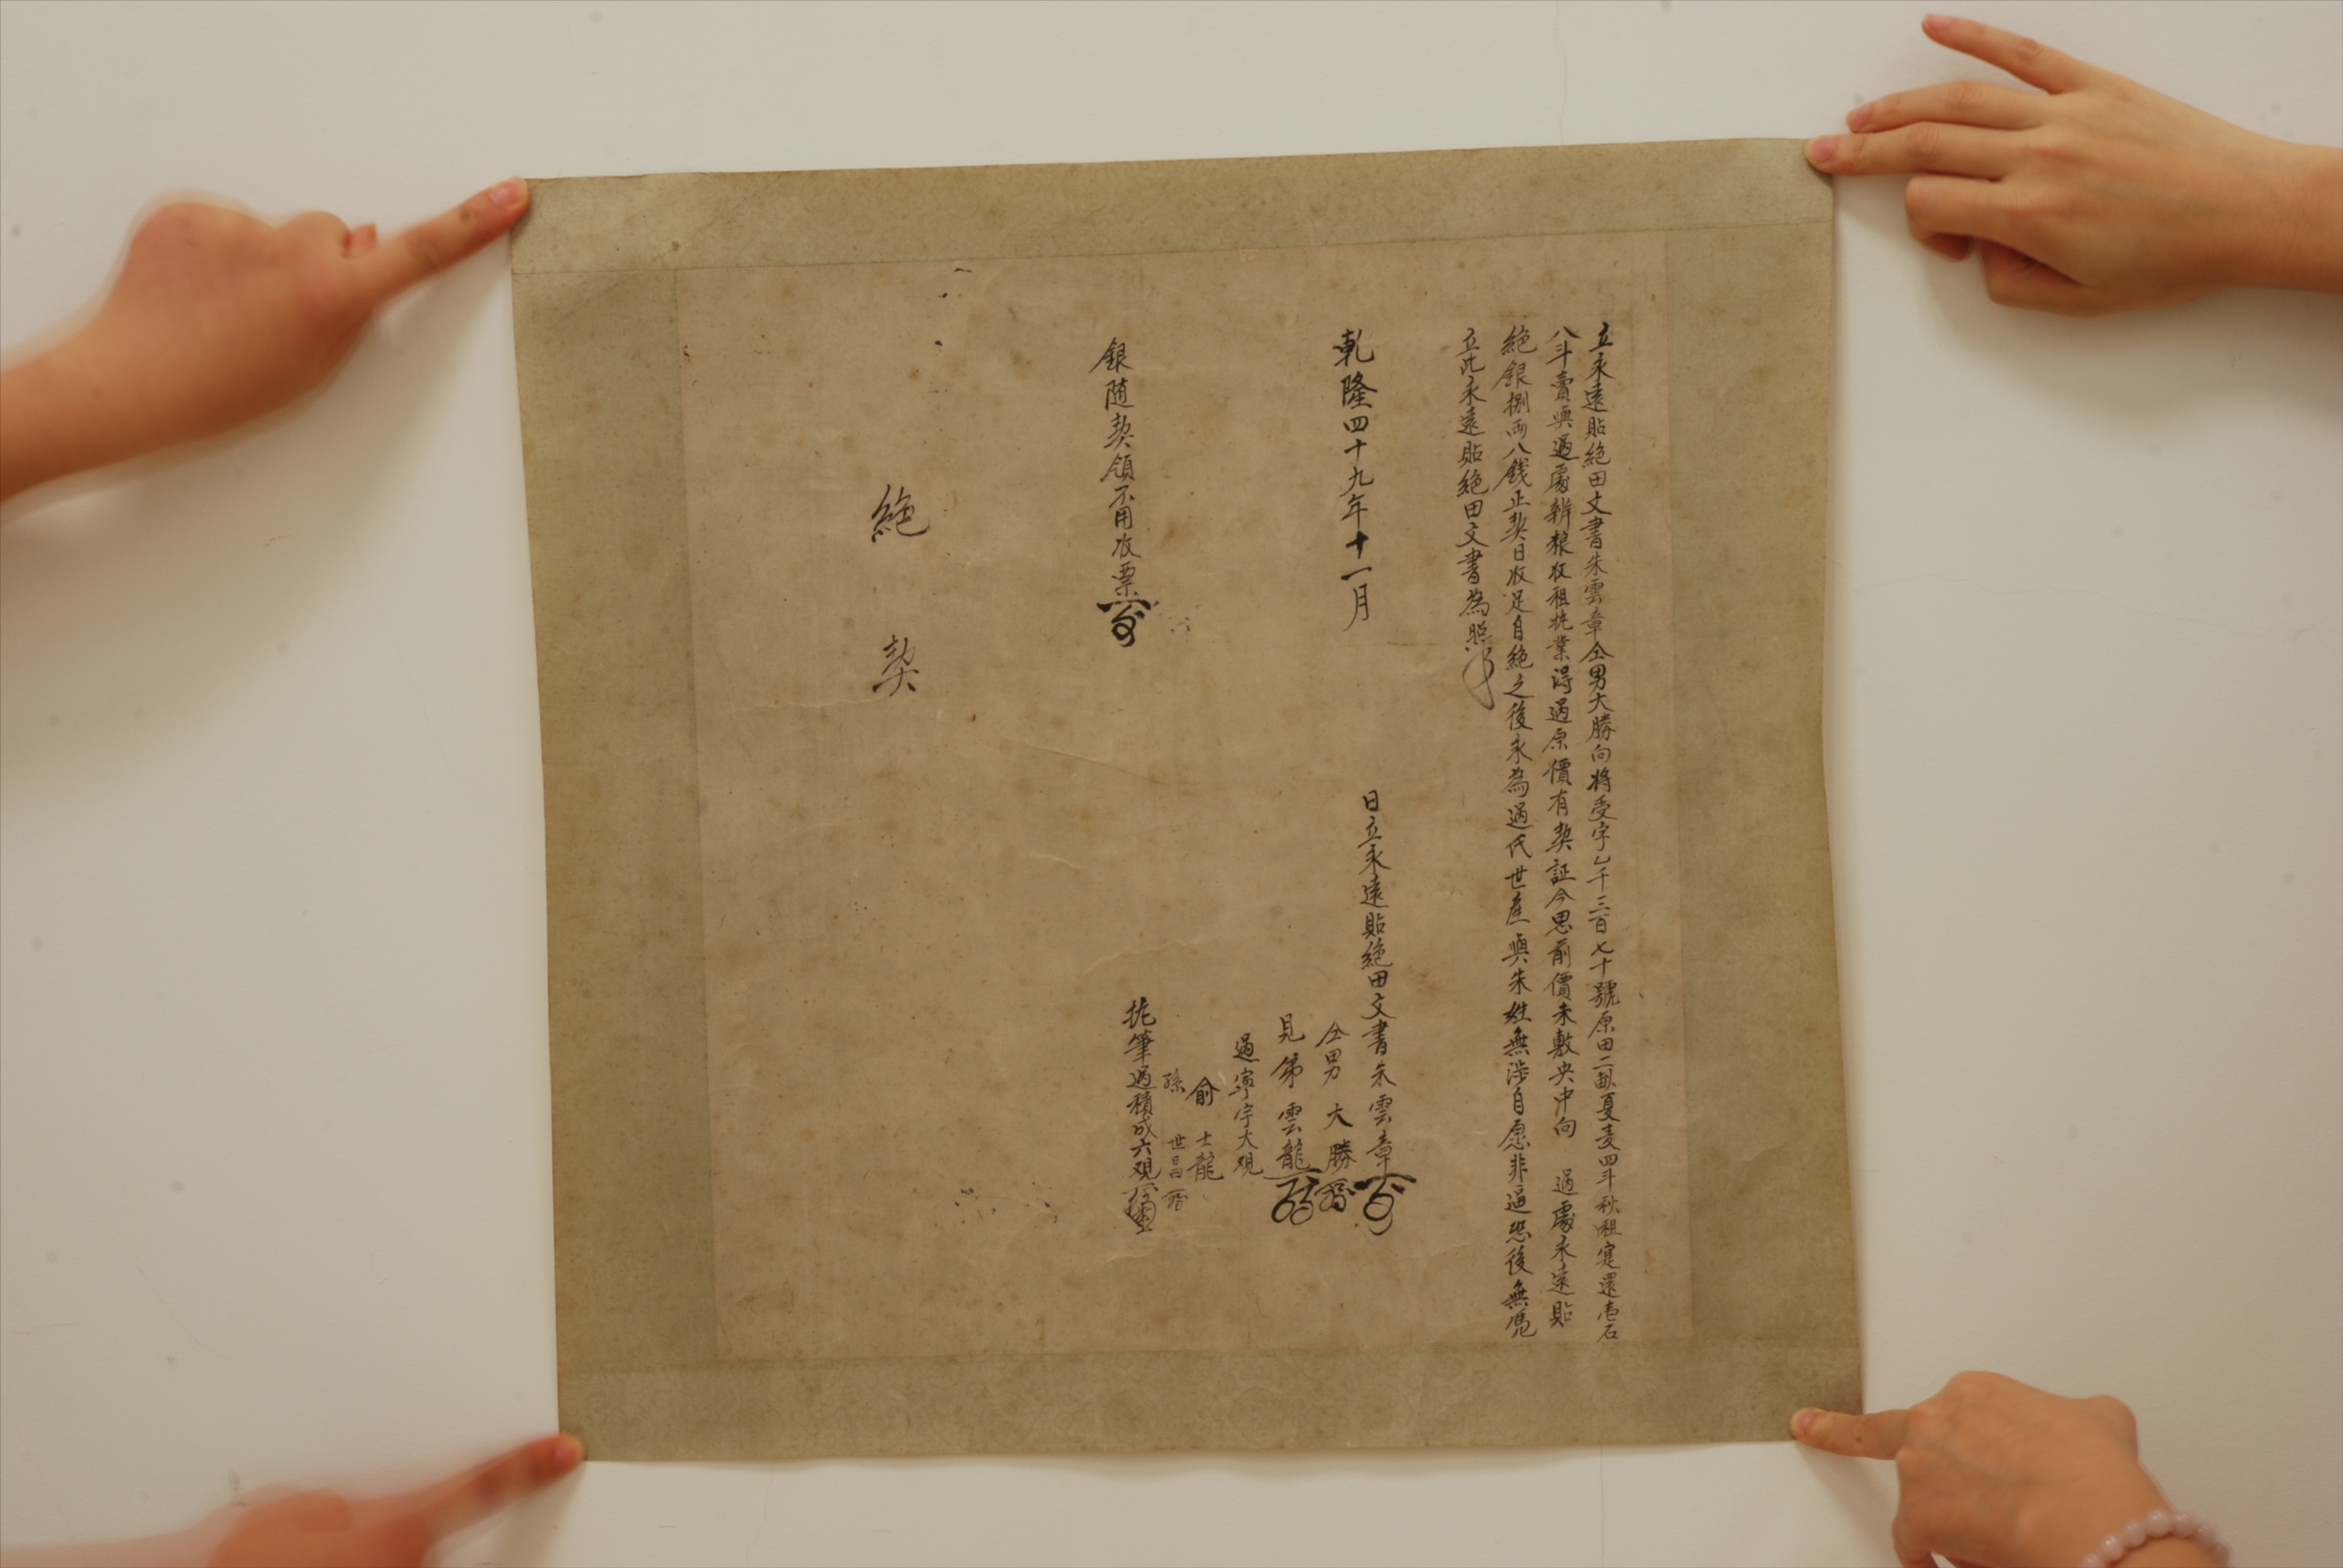 立永遠貼絕田文書朱雲章仝男大勝向將受字乙千三百七十號原田二畝夏麦四斗秋租寔還壱石
八斗賣與過處辦粮收租执業淂過原價有契証今思前價未敷央中向 過處永遠貼
絕銀捌兩八錢正契日收足自絕之後永為過氏世産與朱姓無涉自愿非逼恐後無凴
立此永遠貼絕田文書為照
乾隆四十九年十一月 日立永遠貼絕田文書朱雲章
仝男 大勝
見弟 雲龍
過寧宇大观
俞 士龍
孫 世昌
执筆過積成六观
銀随契領不用收票
絕契